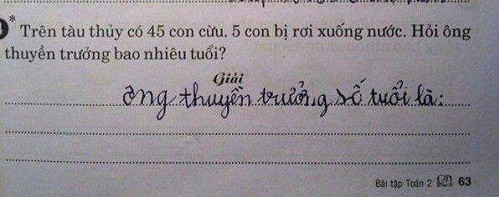 * Trên tàu thủy có 45 con cừu. 5 con bị rơi xuống nước. Hỏi ông
thuyền trưởng bao nhiêu tuổi?
Giải
ông thuyền trưởng số tuổi là:
Bài tập Toán 2 63